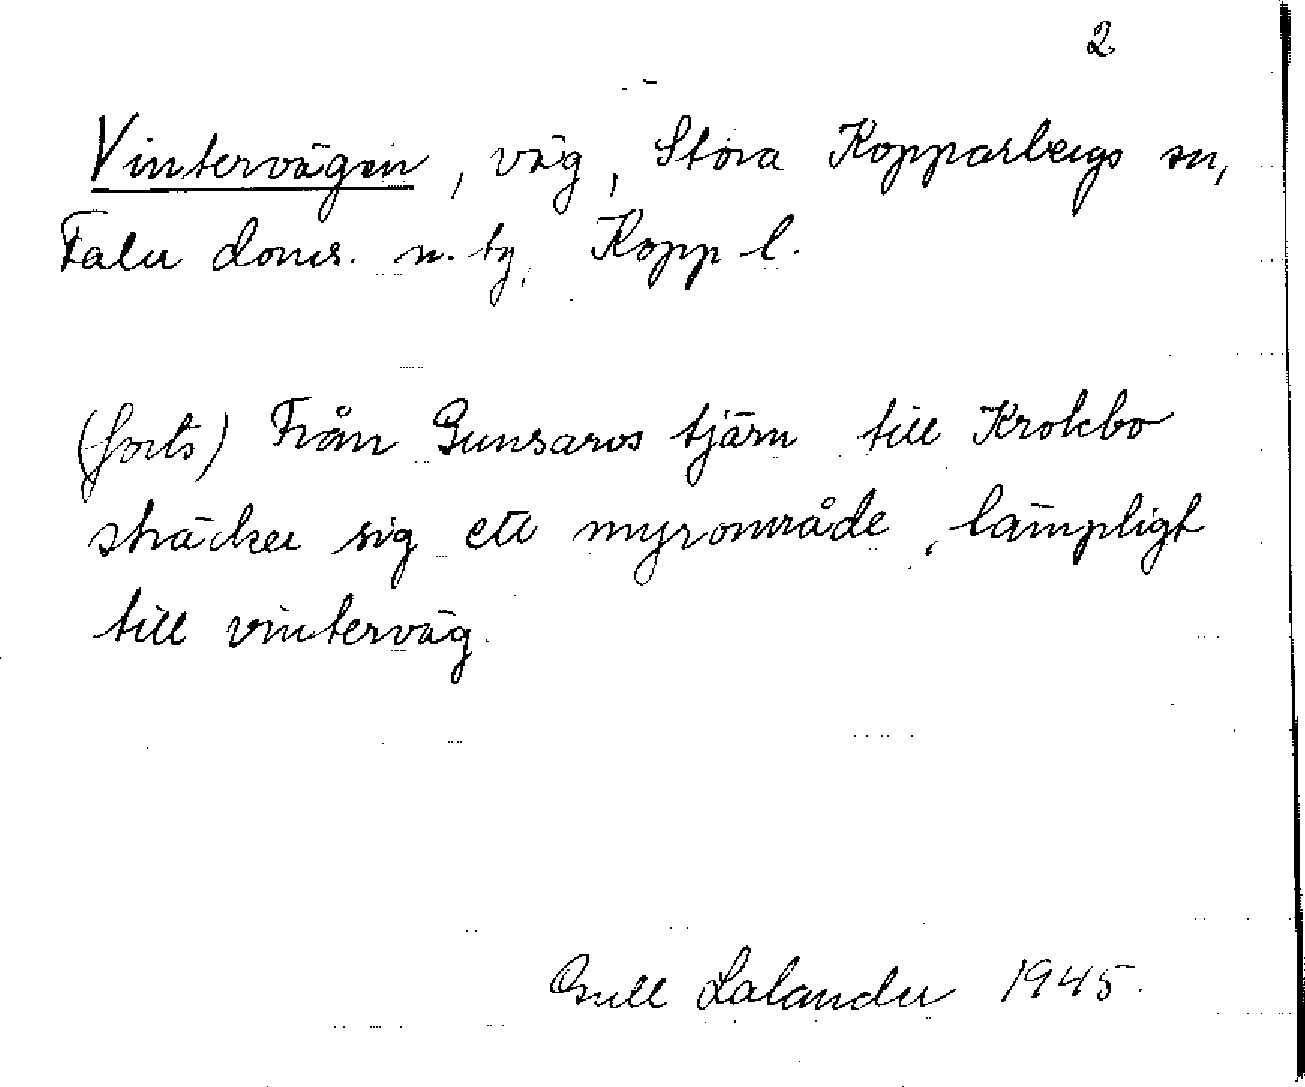 2
Vintervägen, väg, Stora Kopparbergs sn,
Falu doms. n. tg, Kopp l.
(forts) Från Gunsarvs tjärn till Krokbo
sträcker sig ett myrområde, lämpligt
till vinterväg.
Gull Lalander 1945.